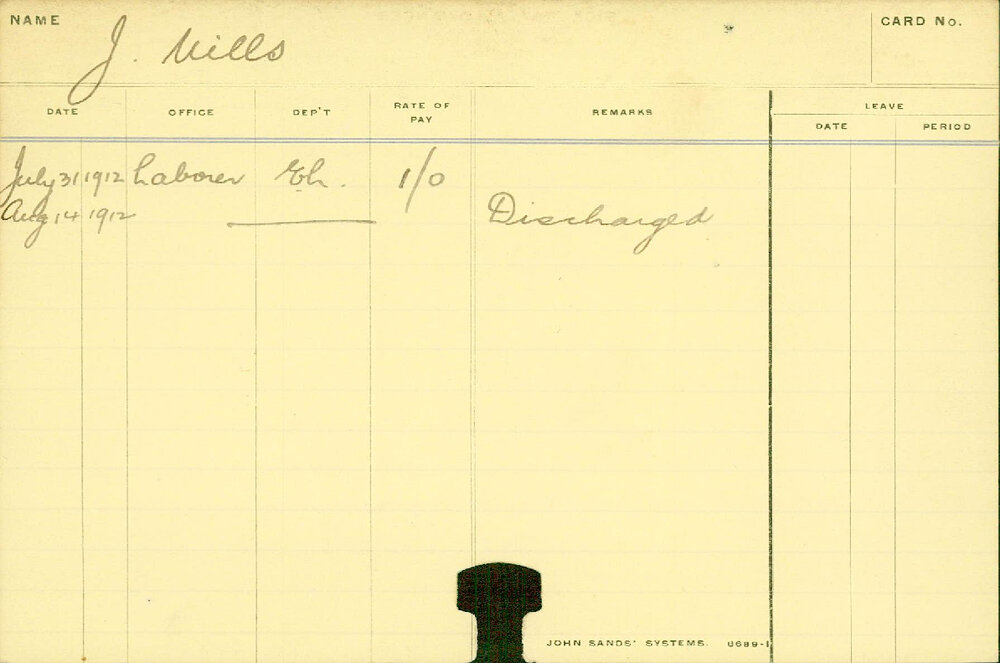 NAME
J. Mills
CARD No.
DATE OFFICE DEP'T RATE OF PAY REMARKS LEAVE
DATE PERIOD
July 31 1912 Laborer 1/0
Aug 14 1912 Discharged
JOHN SANDS' SYSTEMS. 8689-1